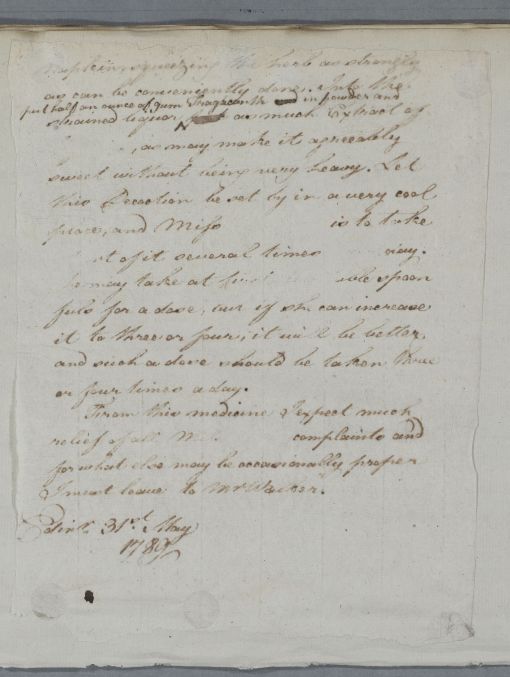 squeezing the herb as strongly
as can be conveniently done. Into the
put half an ounce of gum Tragacanth in powder and
strained liquor as much Extract of
, as may make it agreeably
sweet without being very heavy. Let
this Decoction be set by in a very cool
place, and Miss is to take
of it several times day.
may take at first spoon
fuls for a dose, but if she can increase
it to three or four, it will be better,
and such a dose should be taken three
or four times a day.
From this medicine I expect much
relief of all complaints and
for what else may be occasionally proper
I must leave to Mr
Edinr. 31st May